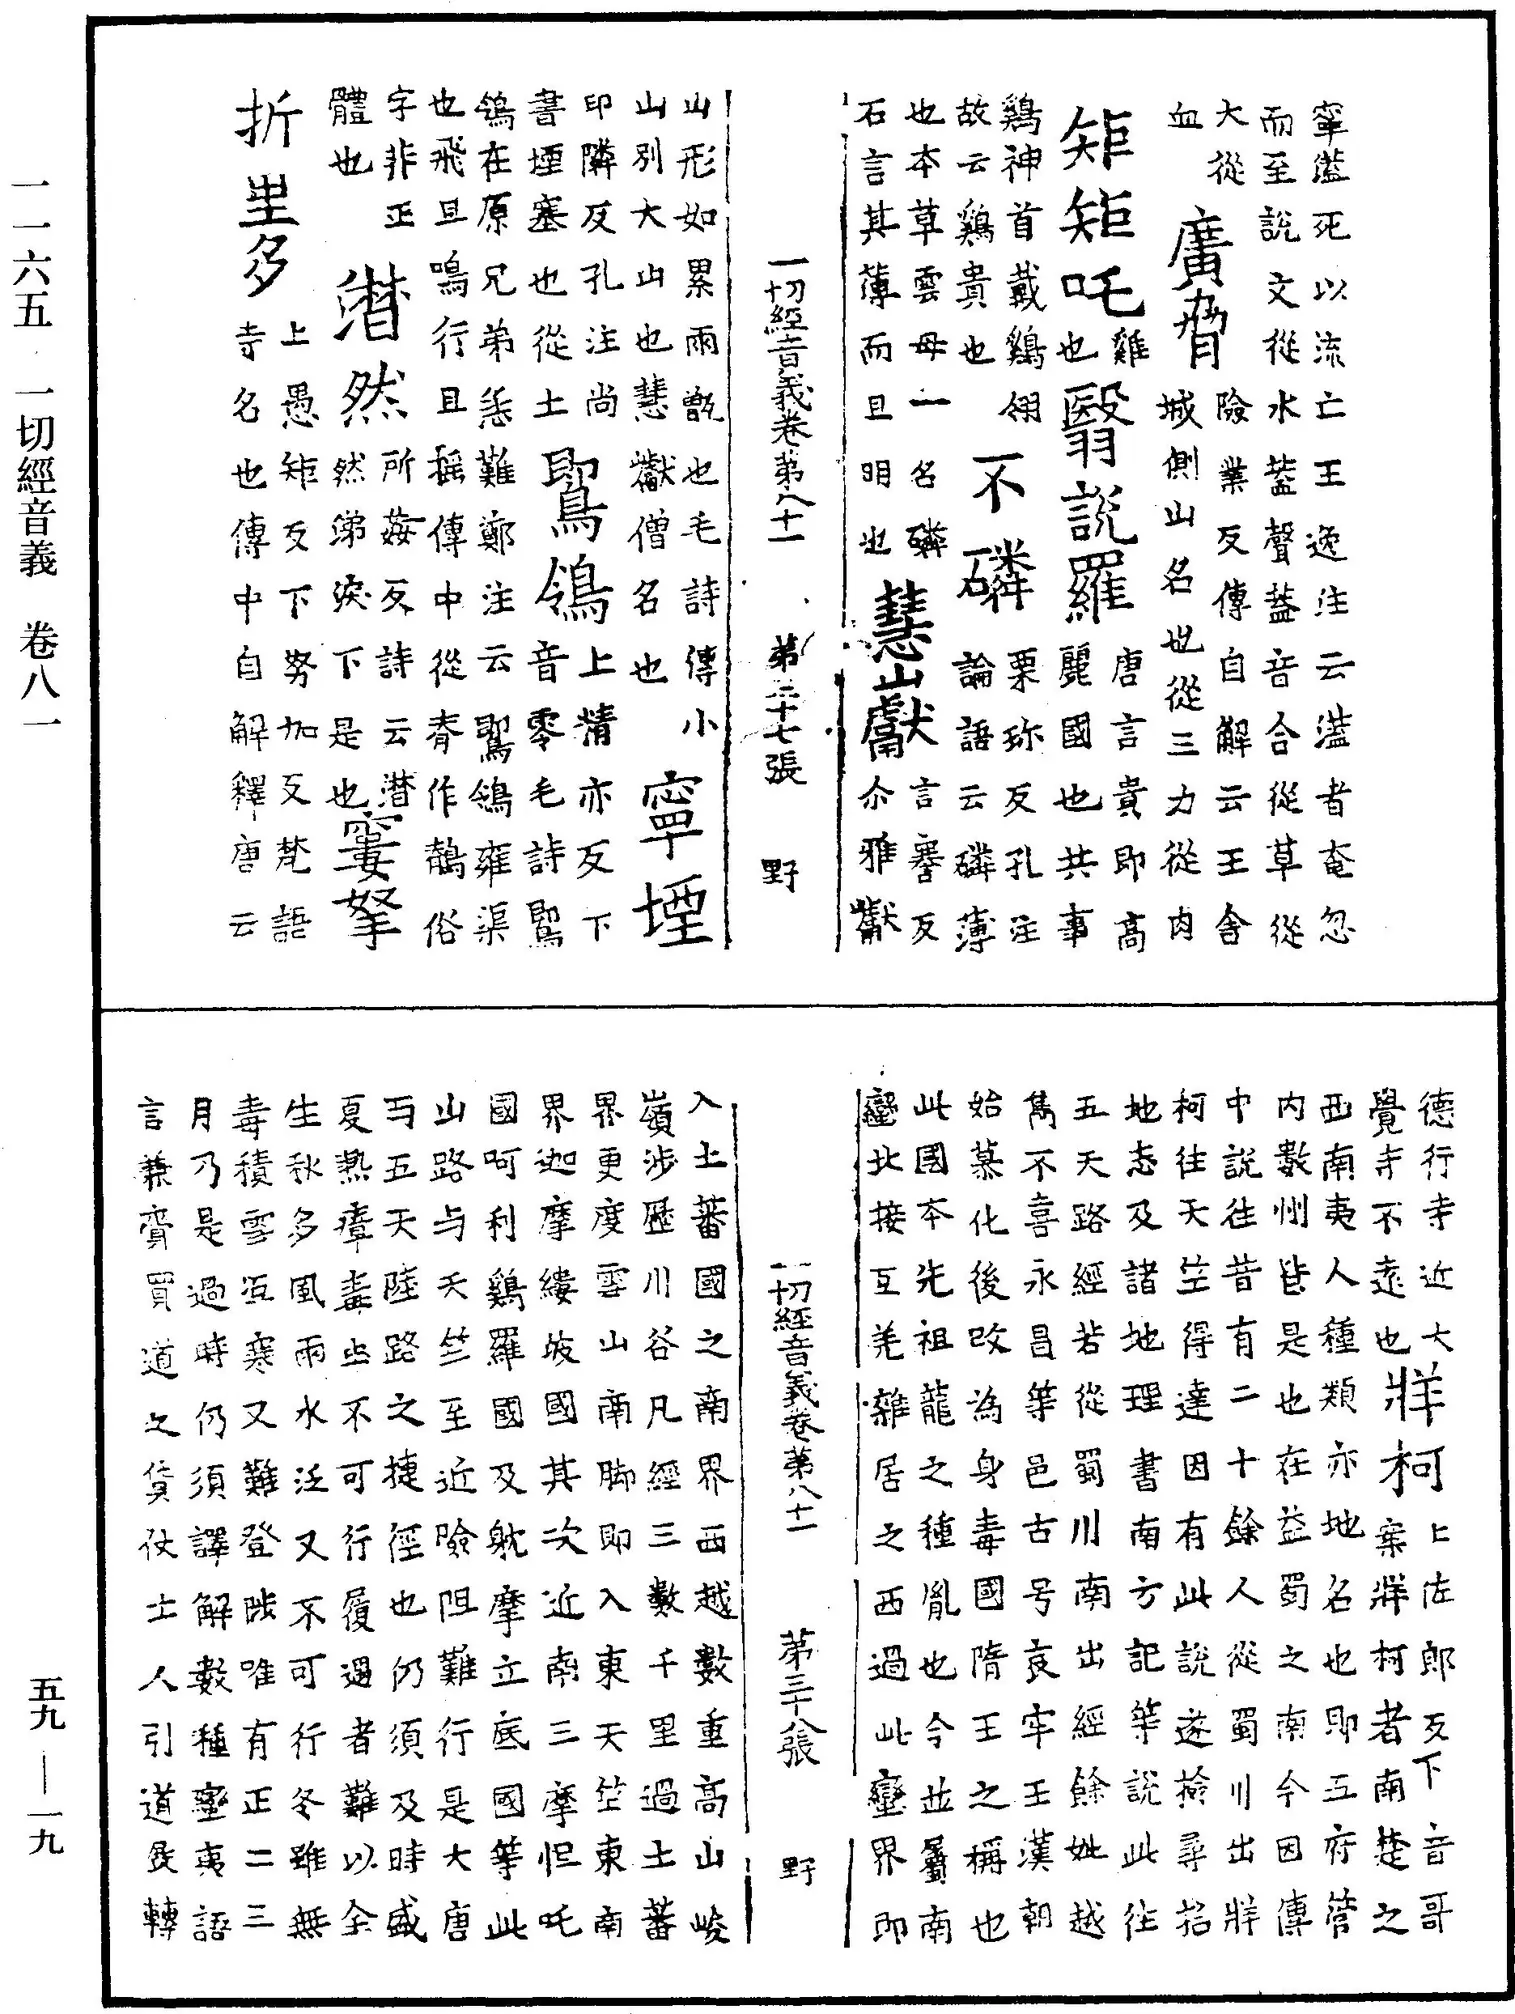 寧濫死以流亡王逸注云濫者奄忽
而至說文從水𥁕聲𥁕音合從草從
大從
血
廣脅
險業反傳自解云王舍
城側山名也從三力從肉
矩矩吒
雞
也
翳說羅
唐言貴即高
麗國也共事
鷄神首戴鷄翎
故云鷄貴也
不磷
栗珎反孔注
論語云磷薄
也本草雲母一名磷
石言其薄而且明也
慧山獻
言謇反
尒雅獻
一切經音義卷第八十一
第三十七張
野
山形如累兩甑也毛詩傳小
山別大山也慧巘僧名也
寧堙
印隣反孔注尚
書堙塞也從土
鶺鴒
上精亦反下
音零毛詩鶺
鴒在原兄弟恙難鄭注云鶺鴒雍渠
也飛且鳴行且搖傳中從脊作鶺俗
字非正
體也
潸然
所姦反詩云潸
然涕淚下是也
窶拏
折里多
上愚矩反下努加反梵語
寺名也傳中自解釋唐云
德行寺近大
覺寺不遠也
牂柯
上佐郎反下音哥
案牂柯者南楚之
西南夷人種類亦地名也即五府管
內數州皆是也在益蜀之南今因傳
中說往昔有二十餘人從蜀川出牂
柯往天竺得達因有此說遂撿尋括
地志及諸地理書南方記等說此往
五天路經若從蜀川南出經餘姚越
雋不喜永昌等邑古号哀牢王漢朝
始慕化後改為身毒國隋王之稱也
此國本先祖龍之種胤也今並屬南
蠻北接互羌雜居之西過此蠻界即
一切經音義卷第八十一
第三十八張
野
入土蕃國之南界西越數重高山峻
嶺涉歷川谷凡經三數千里過土蕃
界更度雪山南脚即入東天竺東南
界迦摩縷波國其次近南三摩怛吒
國呵利鷄羅國及躭摩立底國等此
山路与天竺至近險阻難行是大唐
与五天陸路之捷徑也仍須及時盛
夏熱瘴毒虫不可行履遇者難以全
生秋多風雨水泛又不可行冬雖無
毒積雪冱寒又難登陟唯有正二三
月乃是過時仍須譯解數種蠻夷語
言兼賫買道之貨仗土人引道展轉
一一六五
一切經音義
卷八一
五九—一九